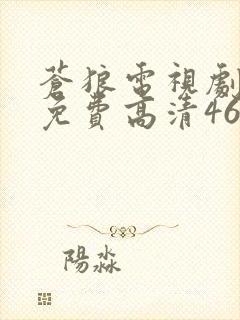 蒼狼電視劇
免費高清46
陽淼